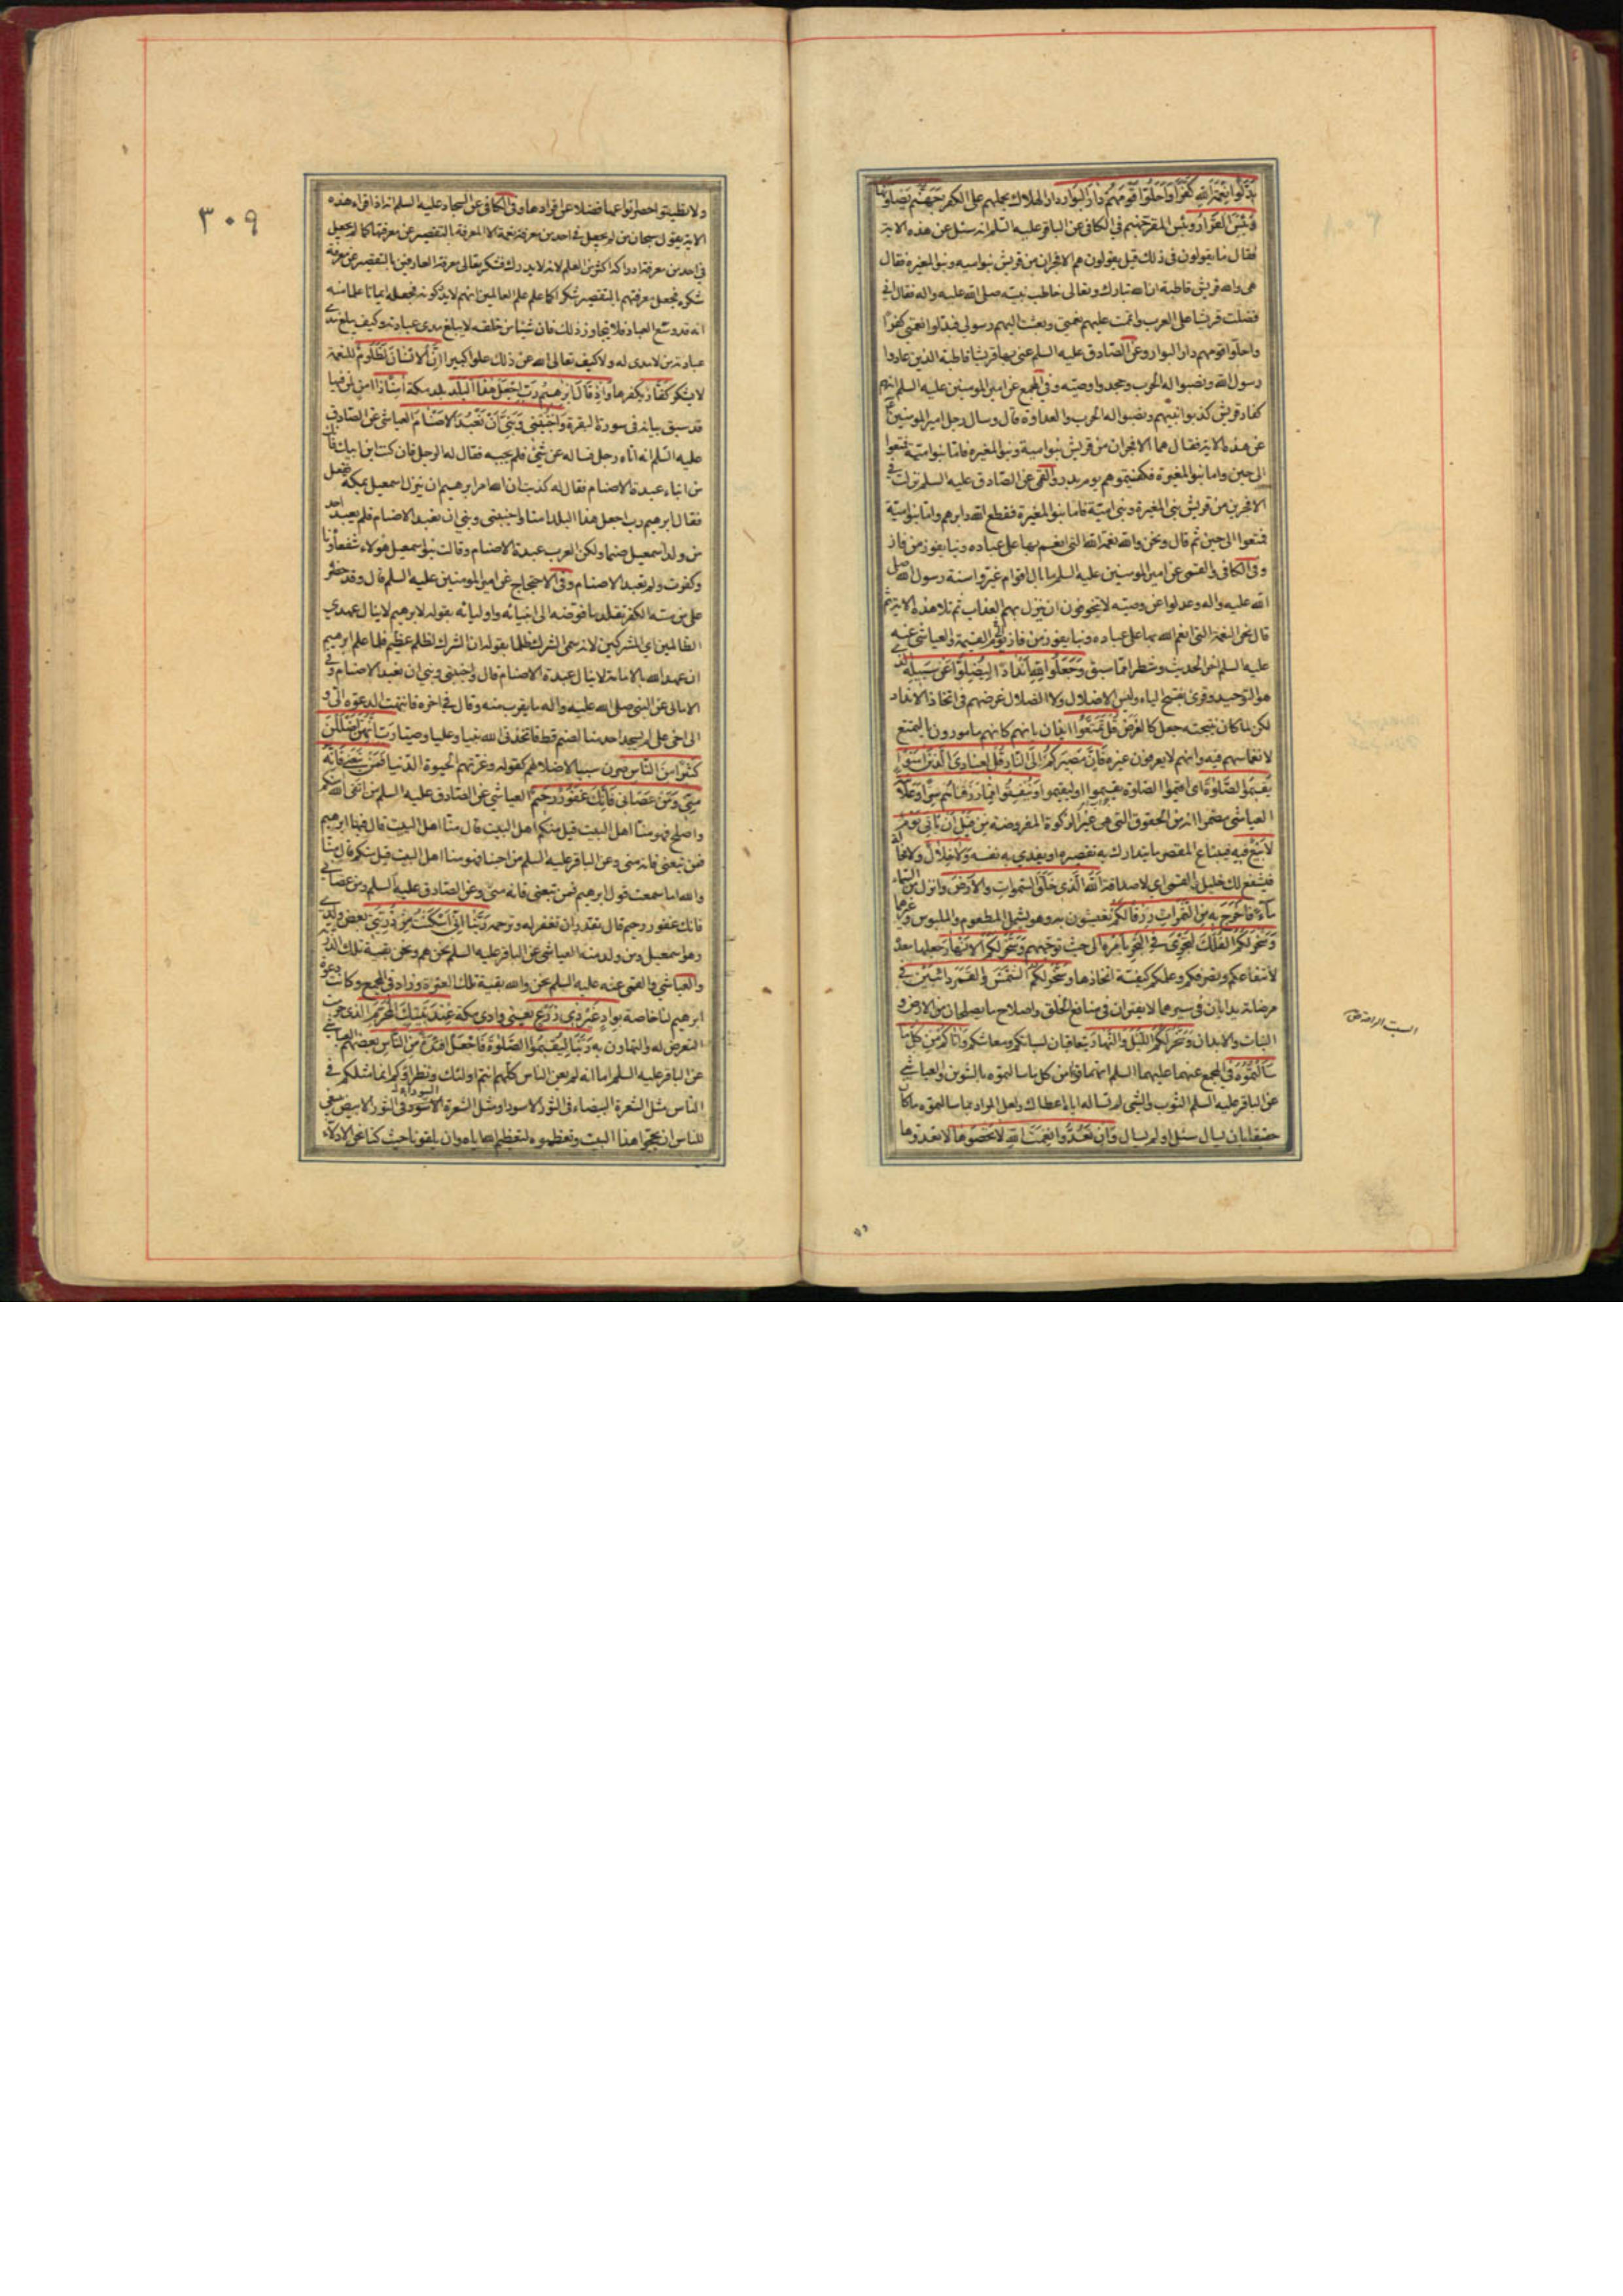 بدلوا نعمة الله كفرا واحلوا قومهم دار البوار دار الهلاك بحملهم على الكفر جهنم يصلونها
وبئس القرار وبئس المقر جهنم في الكافي عن الباقر عليه السلم انه سئل عن هذه الاية
فقال ما يقولون في ذلك قيل يقولون هم الافجران من قريش بنو امية وبنو المغيرة فقال
هي والله قريش قاطبة ان الله تبارك وتعالى خاطب نبيه صلى الله عليه واله فقال اني
فضلت قريشا على العرب واتممت عليهم نعمتي وبعثت اليهم رسولي فبدلوا نعمتي كفرا
واحلوا قومهم دار البوار وعن الصادق عليه السلم عنى بها قريشا قاطبة الذين عادوا
رسول الله ونصبوا له الحرب وجحدوا وصيه وفي المجمع عن امير المومنين عليه السلم انهم
كفار قريش كذبوا نبيهم ونصبوا له الحرب والعداوة قال وسال رجل امير المومنين
عن هذه الاية فقال هما الافجران من قريش بنو امية وبنو المغيرة فاما بنو امية فمتعوا
الى حين واما بنو المغيرة فكفيتموهم يوم بدر والقمي عن الصادق عليه السلم نزلت في
الافجرين من قريش بني المغيرة وبني امية فاما بنو المغيرة فقطع الله دابرهم واما بنو امية
فمتعوا الى حين ثم قال ونحن والله نعمة الله التي انعم بها على عباده وبنا يفوز من فاز
وفي الكافي والقمي عن امير المومنين عليه السلم ما بال اقوام غيروا سنة رسول الله صلى
الله عليه واله وعدلوا عن وصيه لا يتخوفون ان ينزل بهم العذاب ثم تلا هذه الاية ثم
قال نحن النعمة التي انعم الله بها على عباده وبنا يفوز من فاز يوم القيمة والعياشي عنه
عليه السلم اخر الحديث وشطر امما سبق وجعلوا لله اندادا ليضلوا عن سبيله الذي
هو التوحيد وقرئ بفتح الياء وليس الاضلال ولا الضلال غرضهم في اتخاذ الانداد
لكن لما كان نتيجته جعل كالغرض قل تمتعوا ايذان بانهم كانهم مامورون بالتمتع
لانغماسهم فيه وانهم لا يعرفون غيره فان مصيركم الى النار قل لعبادي الذين امنوا
يقيموا الصلوة اي اقيموا الصلوة يقيموا او ليقيموا وينفقوا مما رزقناهم سرا وعلانية
العياشي مضمرا انه من الحقوق التي هي غير الزكوة المفروضة من قبل ان ياتي يوم
لا بيع فيه فيبتاع المقصر ما يتدارك به تقصيره او يفدي به نفسه ولا خلال ولا مخالة
فيشفع لك خليل القمي اي لا صداقة الله الذي خلق السموات والارض وانزل من السماء
ماء فاخرج به من الثمرات رزقا لكم تعيشون به وهو يشمل المطعوم والملبوس وغيرهما
وسخر لكم الفلك لتجري في البحر بامره الى حيث توجهتم وسخر لكم الانهار جعلها معدة
لانتفاعكم وتصرفكم وعلمكم كيفية اتخاذها وسخر لكم الشمس والقمر دائبين في
مرضاته يدابان في سيرهما لا يفتران في منافع الخلق واصلاح ما يصلحان من الارض و
النبات والابدان وسخر لكم الليل والنهار يتعاقبان لسباتكم ومعاشكم واتاكم من كل ما
سالتموه في المجمع عنهما عليهما السلم انهما قرءا من كل ما سالتموه بالتنوين والعياشي
عن الباقر عليه السلم الثوب والشئ لم تساله اياه اعطاك ولعل المراد بما سالتموه ما كان
حقيقا بان يسال سئل او لم يسال وان تعدوا نعمت الله لا تحصوها لا تعدوها
٣٠٩
ولا تطيقوا حصر انواعها فضلا عن افرادها وفي الكافي عن السجاد عليه السلم انه اذا قراء هذه
الاية يقول سبحان من لم يجعل في احد من معرفة نعمه الا المعرفة بالتقصير عن معرفتها كما لم يجعل
في احد من معرفة ادراكه اكثر من العلم لانه لا يدرك فشكر تعالى معرفة العارفين بالتقصير عن معرفة
شكره فجعل معرفتهم بالتقصير شكرا كما علم علم العالمين انهم لا يدركونه فجعله ايمانا علما منه
انه قد وسع العباد فلا يتجاوز ذلك فان شيئا من خلقه لا يبلغ مدى عبادته وكيف يبلغ مدى
عبادته من لا مدى له ولا كيف تعالى الله عن ذلك علوا كبيرا ان الانسان لظلوم للنعمة
لا يشكر كفار يكفرها واذ قال ابرهيم رب اجعل هذا البلد بلد مكة امنا ذا امن لمن فيها
قد سبق بيانه في سورة البقرة واجنبني وبني ان نعبد الاصنام العياشي عن الصادق
عليه السلم انه اتاه رجل فساله عن شئ فلم يجبه فقال له الرجل فان كنت ابن ابيك فانك
من ابناء عبدة الاصنام فقال له كذبت ان الله امر ابرهيم ان ينزل اسمعيل بمكة ففعل
فقال ابرهيم رب اجعل هذا البلد امنا واجنبني وبني ان نعبد الاصنام فلم يعبد احد
من ولد اسمعيل صنما ولكن العرب عبدة الاصنام وقالت بنو اسمعيل هؤلاء شفعاؤنا
وكفرت ولم تعبد الاصنام وفي الاحتجاج عن امير المومنين عليه السلم قال وقد حظر
على من مسه الكفر تقلد ما فوضه الى انبيائه واوليائه بقوله لابرهيم لا ينال عهدي
الظالمين اي المشركين لانه سمى الشرك ظلما بقوله ان الشرك لظلم عظيم فلما علم ابرهيم
ان عهد الله بالامامة لا ينال عبدة الاصنام قال واجنبني وبني ان نعبد الاصنام وفي
الامالي عن النبي صلى الله عليه واله ما يقرب منه وقال في اخره فانتهت الدعوة الي و
الى اخي علي لم يسجد احد منا لصنم قط فاتخذني الله نبيا وعليا وصيا رب انهن اضللن
كثيرا من الناس صرن سببا لاضلالهم كقوله وغرتهم الحيوة الدنيا فمن تبعني فانه
مني ومن عصاني فانك غفور رحيم العياشي عن الصادق عليه السلم من اتقى الله منكم
واصلح فهو منا اهل البيت قيل منكم اهل البيت قال منا اهل البيت قال فيها ابرهيم
فمن تبعني فانه مني وعن الباقر عليه السلم من احبنا فهو منا اهل البيت قيل منكم قال منا
والله اما سمعت قول ابرهيم فمن تبعني فانه مني وعن الصادق عليه السلم ومن عصاني
فانك غفور رحيم قال تقدر ان تغفر له وترحمه ربنا اني اسكنت من ذريتي بعض ولدي
وهو اسمعيل ومن ولد منه العياشي عن الباقر عليه السلم نحن هم ونحن بقية تلك الذرية
والعياشي والقمي عنه عليه السلم نحن والله بقية تلك العترة وزاد في المجمع وكانت دعوة
ابرهيم لنا خاصة بواد غير ذي زرع يعني وادي مكة عند بيتك المحرم الذي حرمت
التعرض له والتهاون به ربنا ليقيموا الصلوة فاجعل افئدة من الناس بعضهم العياشي
عن الباقر عليه السلم اما انه لم يعن الناس كلهم انتم اولئك ونظراؤكم انما مثلكم في
الناس مثل الشعرة البيضاء في الثور الاسود او مثل الشعرة السوداء في الثور الابيض ينبغي
للناس ان يحجوا هذا البيت ويعظموه لتعظيم الله اياه وان يلقونا حيث كنا نحن الادلاء